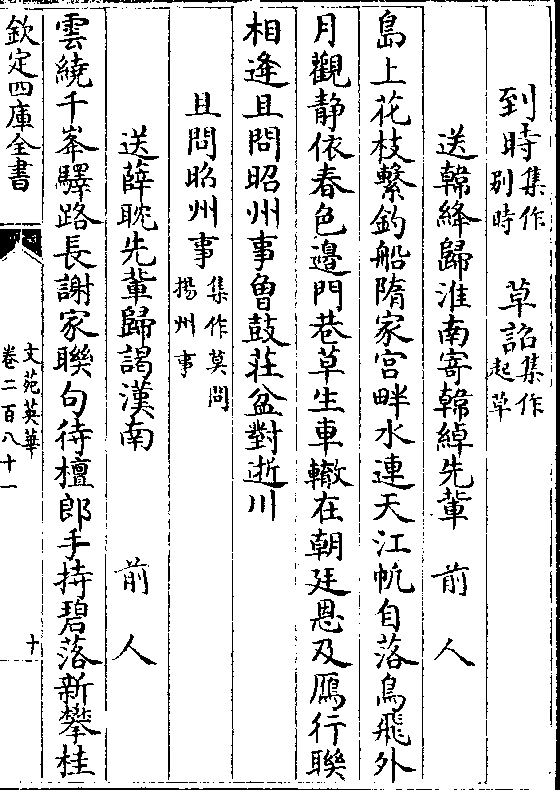 到時集作別時　草詔集作起草
送韓絳歸淮南寄韓綽先輩　前人
島上花枝繫釣船隋家宫畔水連天江帆自落鳥飛外
月觀静依春色邉門巷草生車轍在朝廷恩及鴈行聨
相逢且問昭州事曾鼓荘盆對逝川
且問昭州事集作莫問揚州事
送薛耽先輩歸謁漢南　前人
雲繞千峯驛路長謝家聨句待檀郎手持碧落新攀桂
欽定四庫全書
文苑英華
卷二百八十一
十